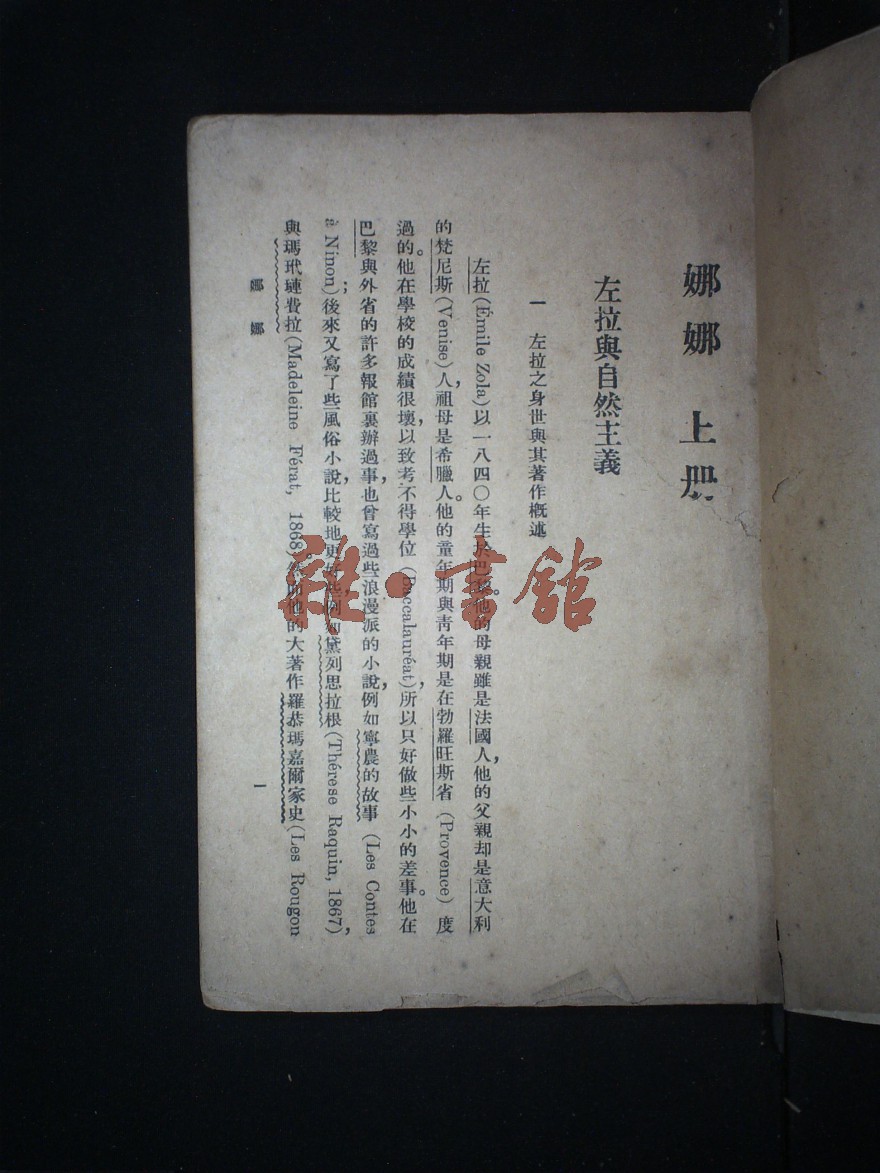 娜娜 上册
左拉與自然主義
一 左拉之身世與其著作概述
左拉(Émile Zola)以一八四〇年生於巴黎。他的母親雖是法國人，他的父親却是意大利
的梵尼斯(Venise)人，祖母是希臘人。他的童年期與青年期是在勃羅旺斯省(Provence)度
過的。他在學校的成績很壞，以致考不得學位(Baccalauréat)，所以只好做些小小的差事。他在
巴黎與外省的許多報館裏辦過事，也曾寫過些浪漫派的小說，例如寧農的故事(Les Contes
à Ninon)；後來又寫了些風俗小說，比較地更好些，例如黛列思拉根(Thérèse Raquin, 1867)，
與瑪玳璉費拉(Madeleine Férat, 1868)。他的大著作羅恭瑪嘉爾家史(Les Rougon
娜娜
一
雜·書館